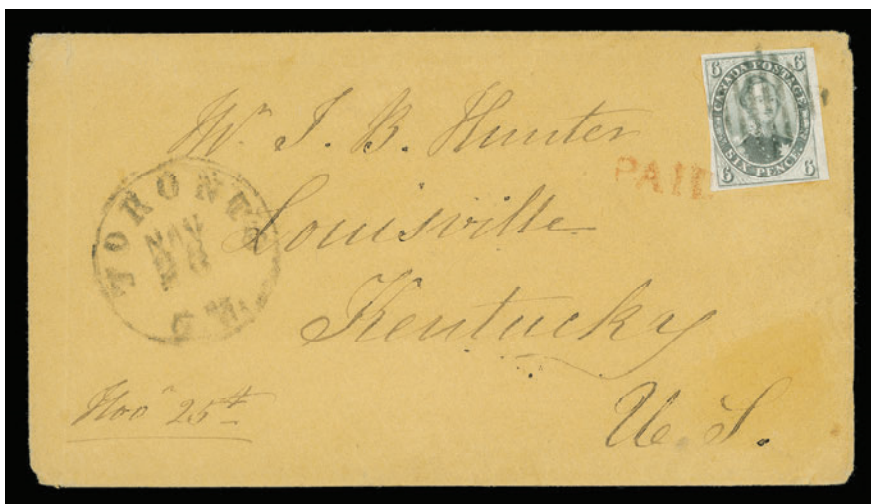 6 CANADA POSTAGE 6
SIX PENCE
6 6
Mr. J. B. Hunter
PAID
TORONTO
Louisville
C.W.
Kentucky
Nov 25th
U. S.